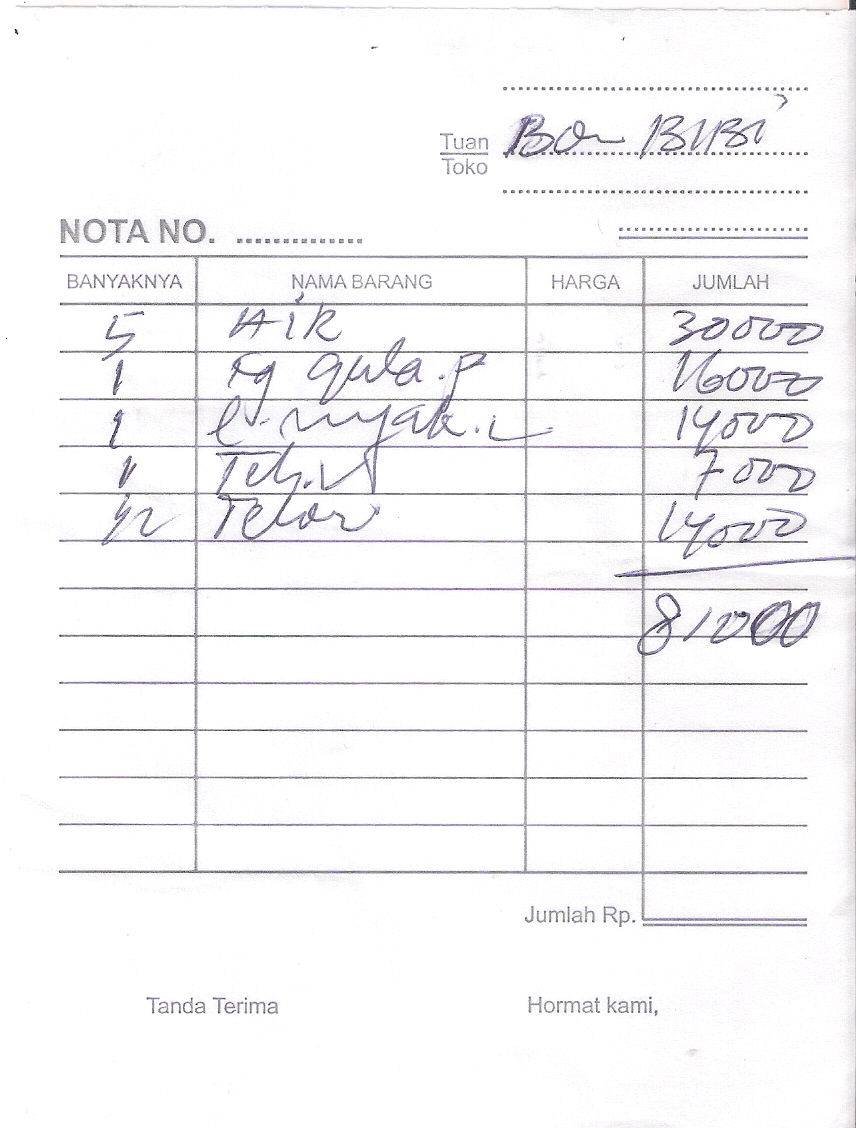 Tuan Bon BIBI
Toko
NOTA NO. ..............
BANYAKNYA NAMA BARANG HARGA JUMLAH
5 AiR 30000
1 kg gula.p 16000
1 l.nyak.L 14000
1 Teh. 7000
1/2 Telor 14000
81000
Jumlah Rp.
Tanda Terima Hormat kami,